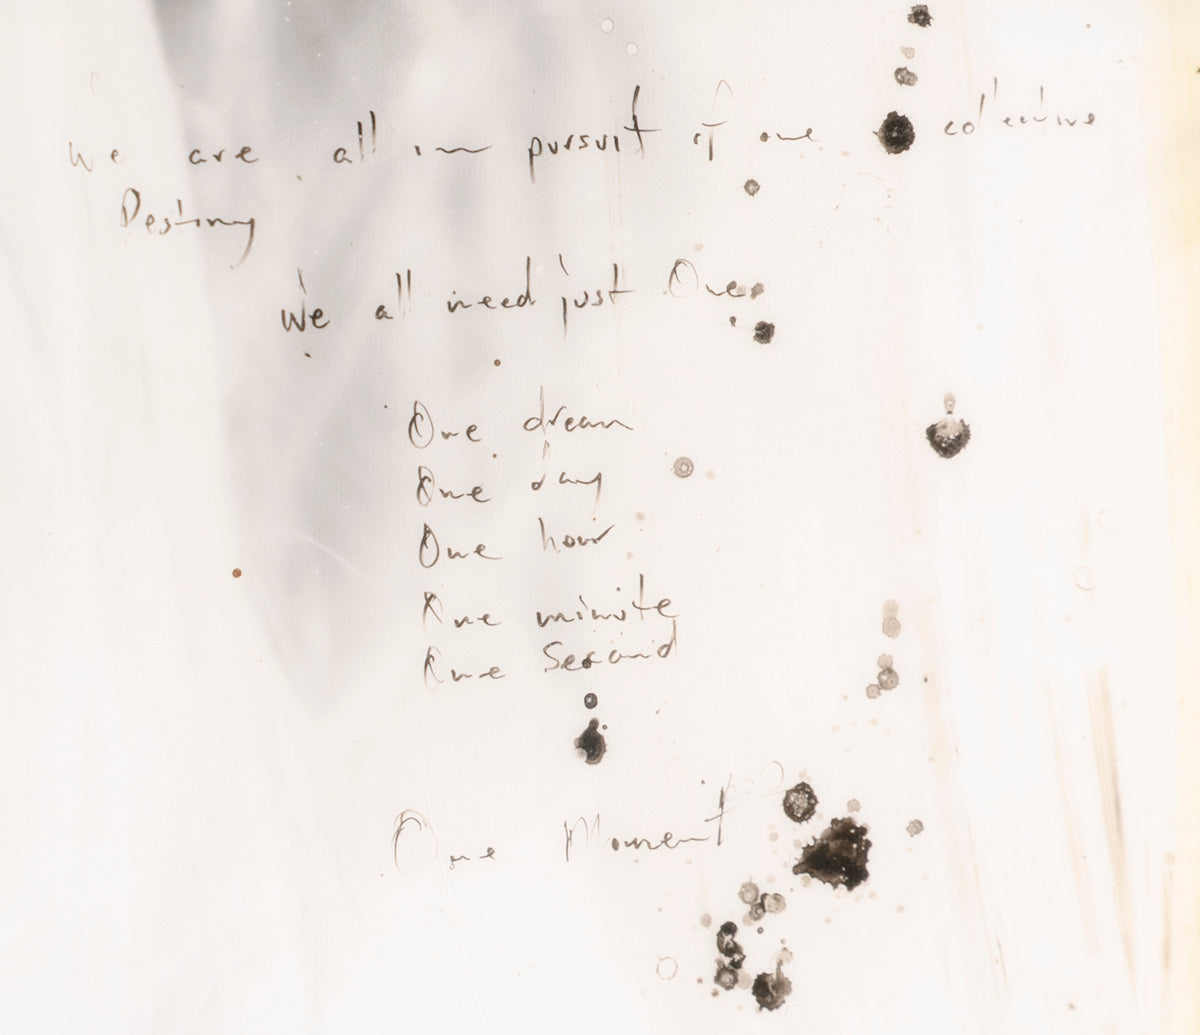 We are all in pursuit of one collective
Destiny
We all need just One
One dream
One day
One hour
One minite
One Second
One Moment